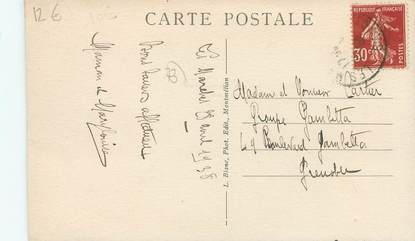 12 €
CARTE POSTALE
REPUBLIQUE FRANÇAISE
30
POSTES
Bons baisers affectueux
Maman et
avril 1938
I. Blanc, Phot. Edit., Montmélian
Madame et Monsieur Cartier
Groupe Gambetta
49 Boulevard Gambetta
Grenoble